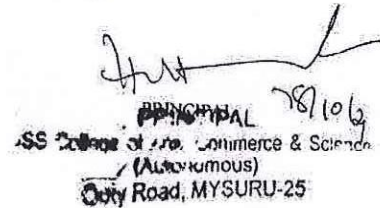 PRINCIPAL
SS College of Commerce & Science
(Autonomous)
Ooty Road, MYSURU-25